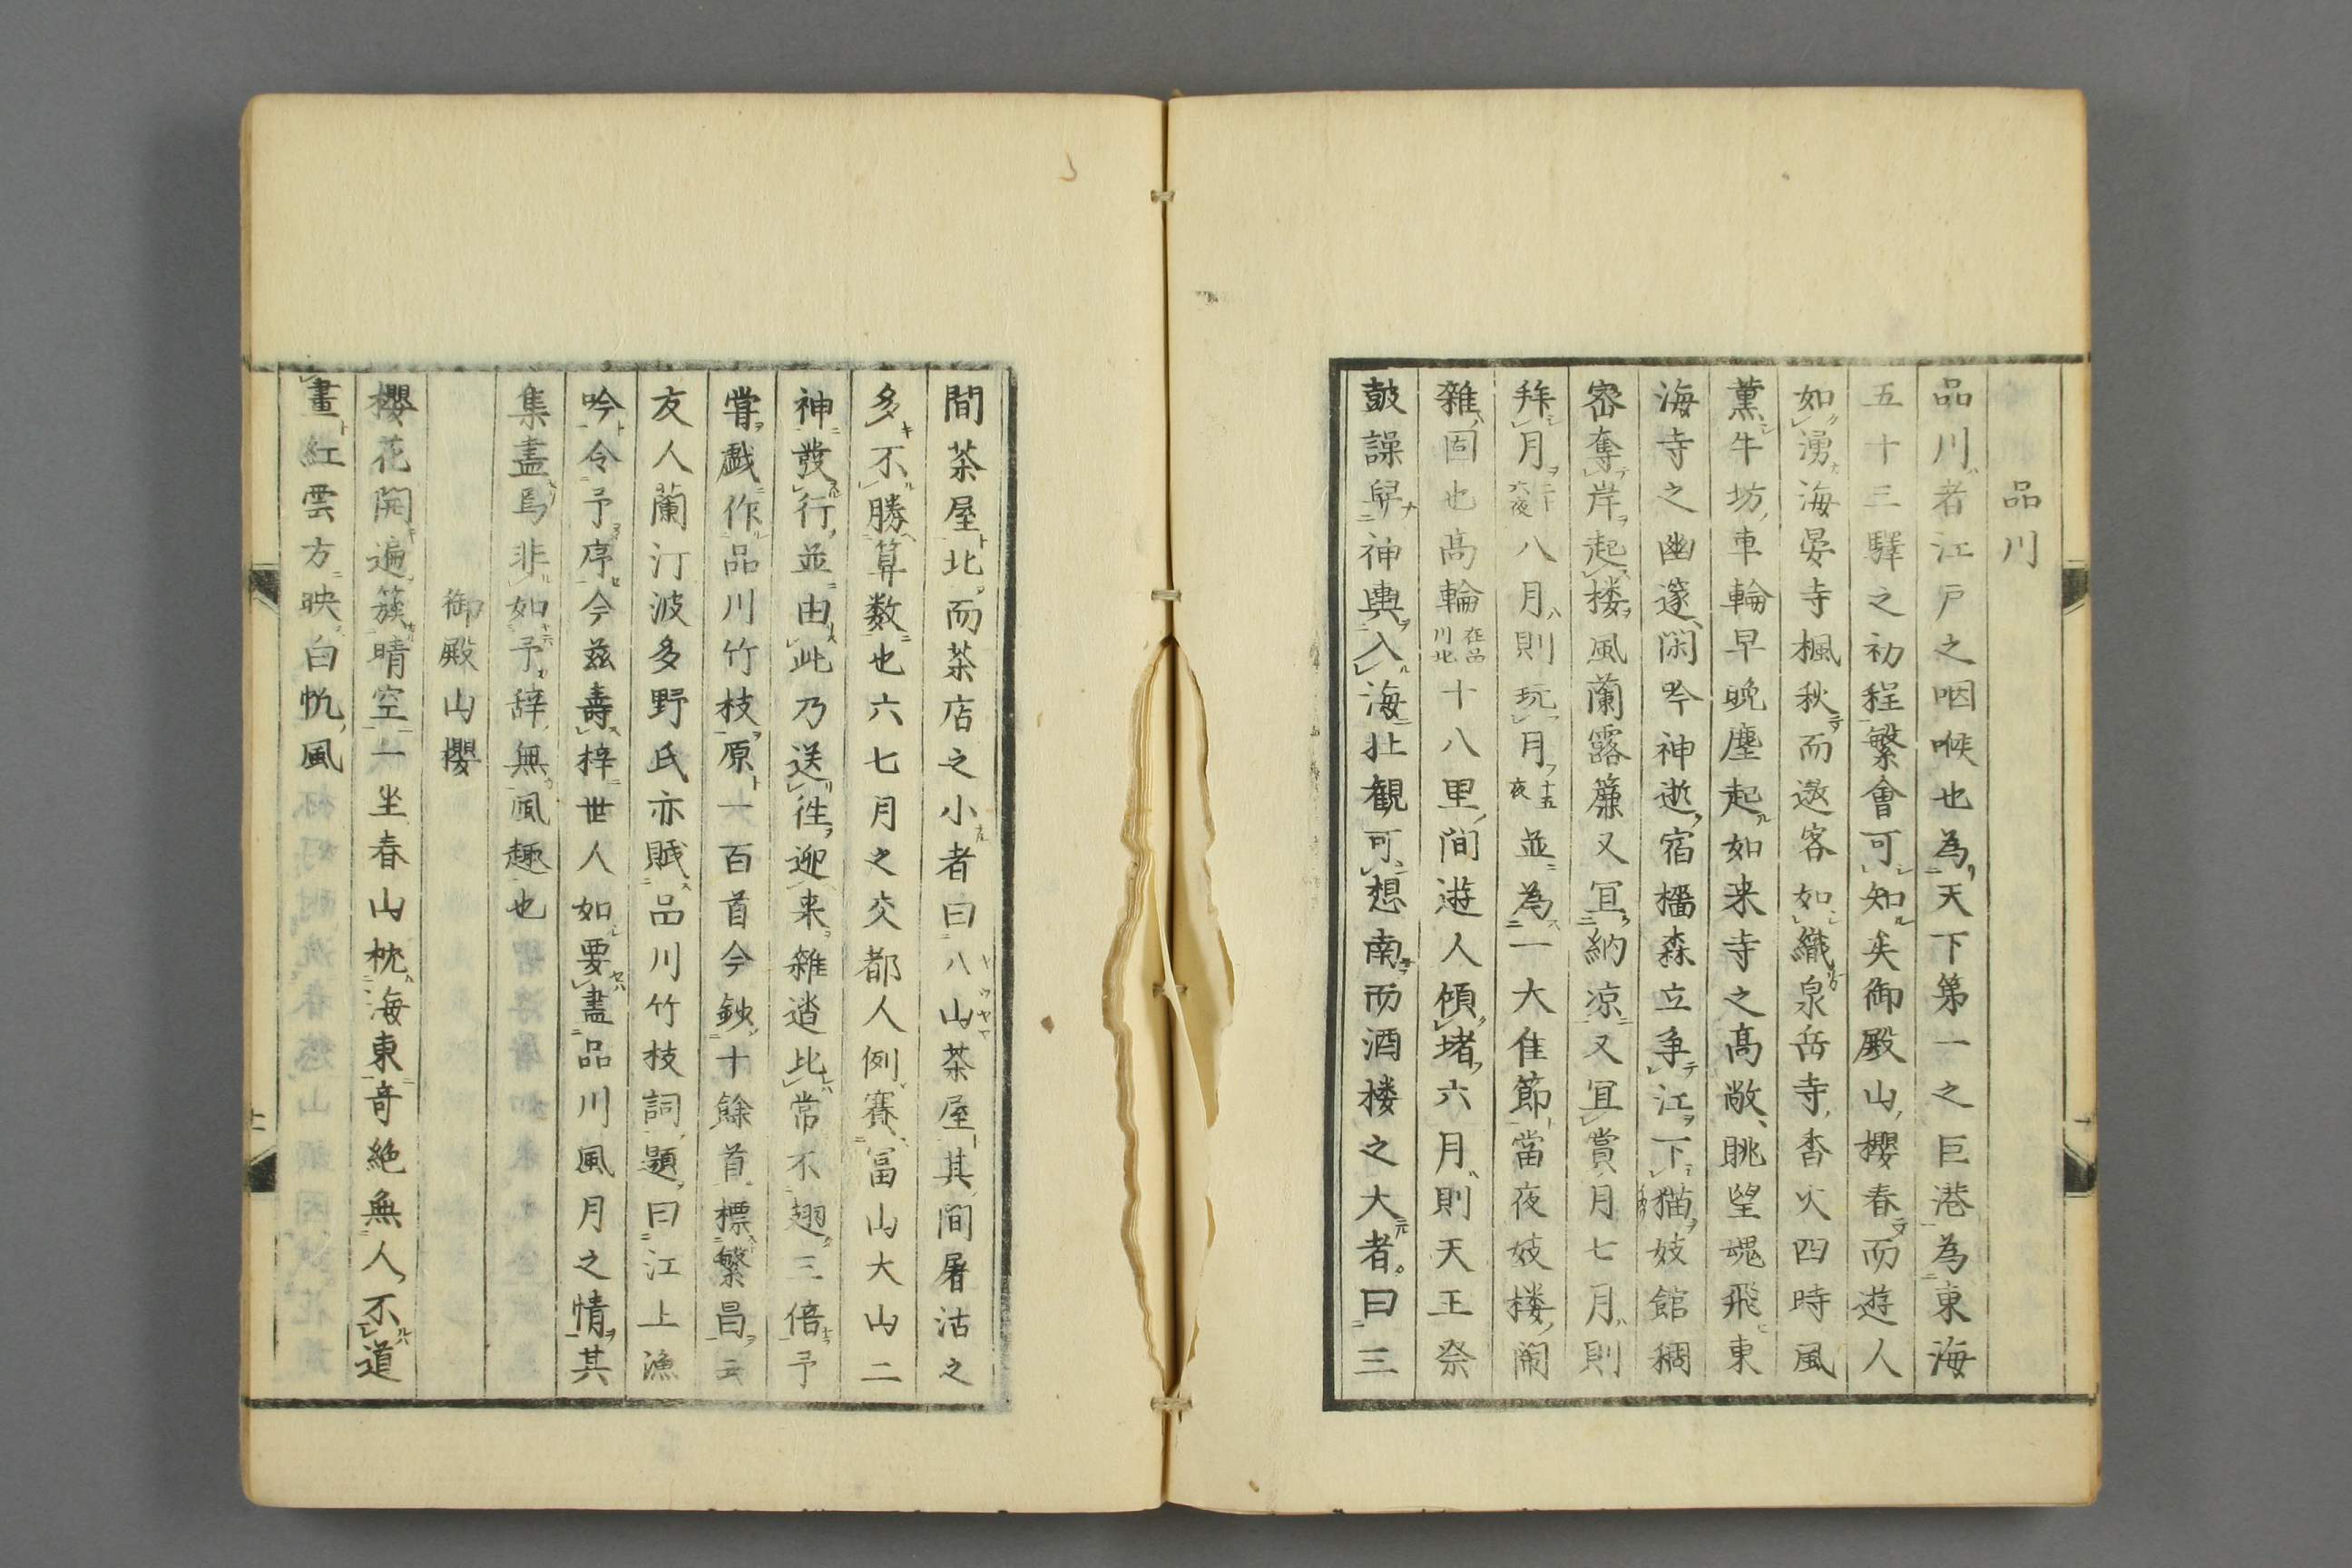 品川
品川者江戸之咽喉也為天下第一之巨港為東海
五十三驛之初程繁會可知矣御殿山櫻春而遊人
如湧海晏寺楓秋而遨客如織泉岳寺香火四時風
薫牛坊車輪早晩塵起如来寺之髙敞眺望魂飛東
海寺之幽邃閑吟神逝宿檣森立爭江下猫妓館稠
宻奪岸起楼風蘭露簾又冝納凉又冝賞月七月則
拜月二十六夜八月則玩月十五夜並為一大佳節當夜妓楼閙
雜固也髙輪在品川北十八里間遊人傾堵六月則天王祭
皷譟舁神輿入海壮観可想南而酒楼之大者曰三
間茶屋北而茶店之小者曰八山茶屋其間屠沽之
多不勝算数也六七月之交都人例賽冨山大山二
神發行並由此乃送往迎来雜遝比常不翅三倍予
嘗戯作品川竹枝原一百首今鈔十餘首標繁昌云
友人蘭汀波多野氏亦賦品川竹枝詞題曰江上漁
吟令予序今兹壽梓世人如要盡品川風月之情其
集盡焉非如予辞無風趣也
御殿山櫻
櫻花開遍簇晴空一坐春山枕海東奇絶無人不道
畫紅雲方映白帆風